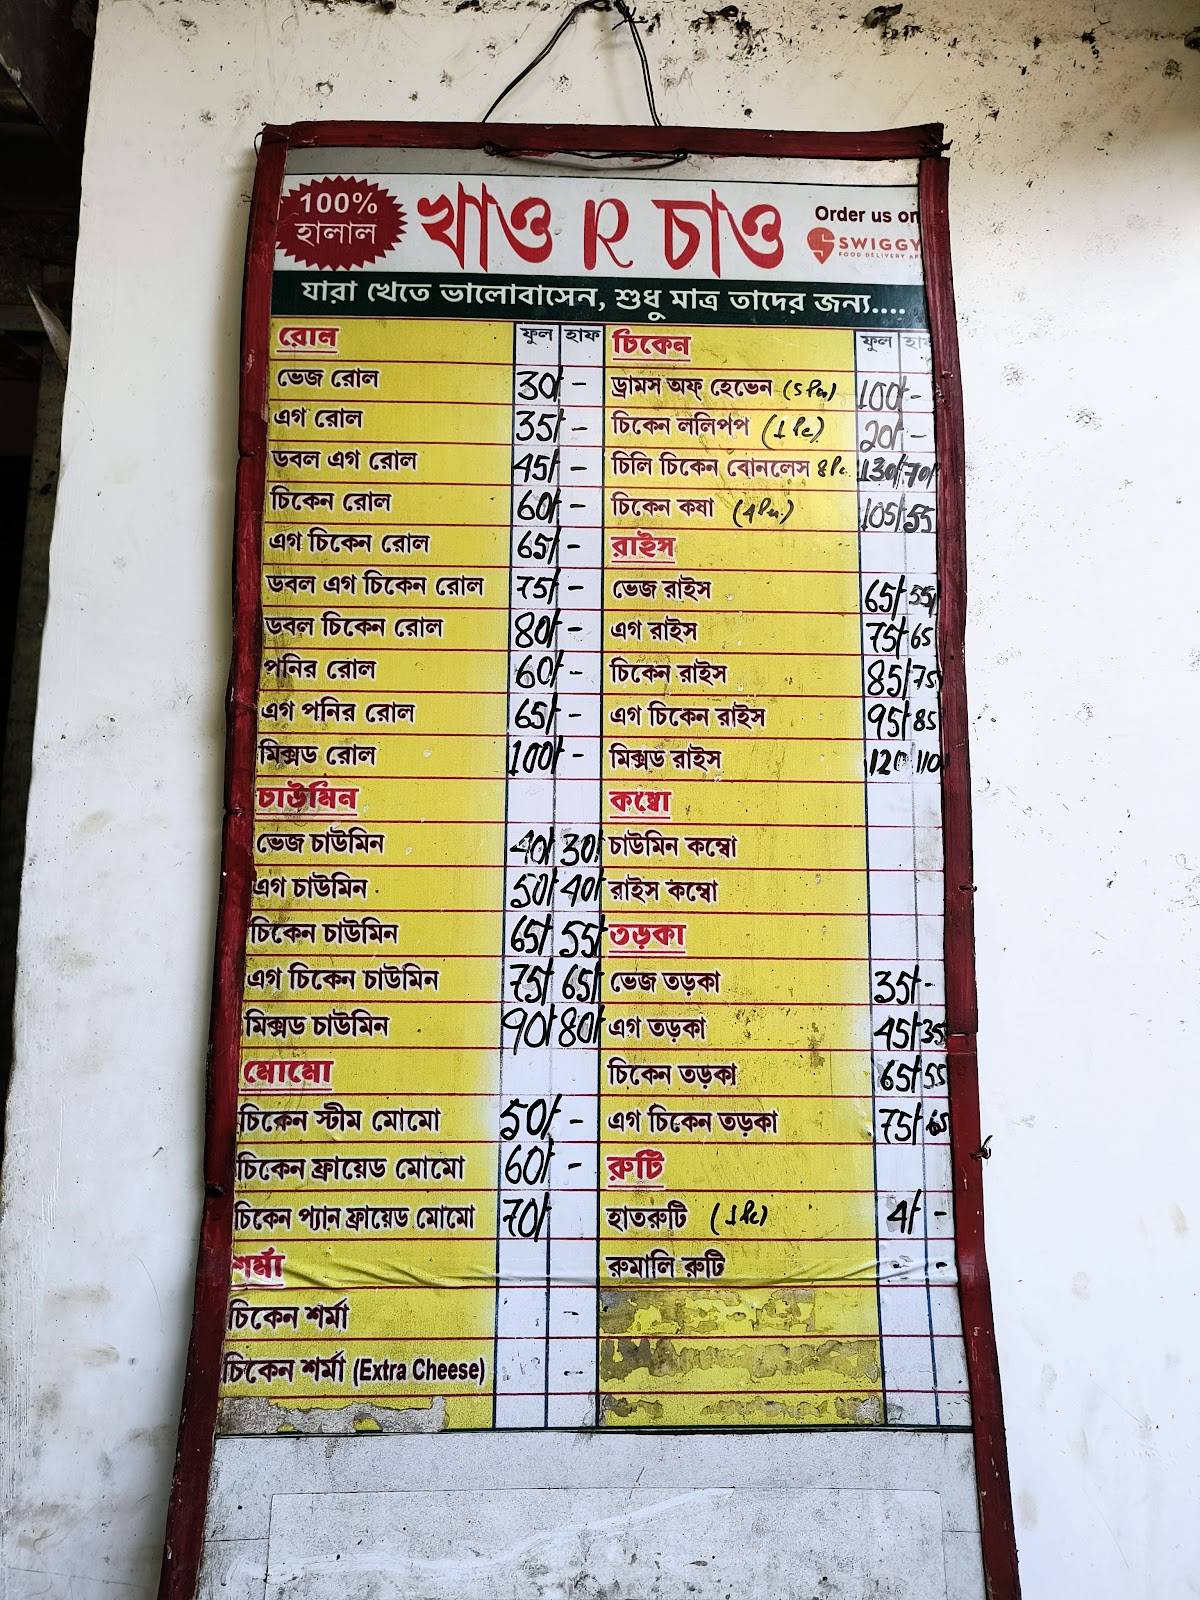 100%
হালাল
খাও R চাও
Order us on
SWIGGY
FOOD DELIVERY
যারা খেতে ভালোবাসেন, শুধু মাত্র তাদের জন্য....
রোল ফুল হাফ
ভেজ রোল 30/- -
এগ রোল 35/- -
ডবল এগ রোল 45/- -
চিকেন রোল 60/- -
এগ চিকেন রোল 65/- -
ডবল এগ চিকেন রোল 75/- -
ডবল চিকেন রোল 80/- -
পনির রোল 60/- -
এগ পনির রোল 65/- -
মিক্সড রোল 100/- -
চাউমিন
ভেজ চাউমিন 40/ 30/
এগ চাউমিন 50/ 40/
চিকেন চাউমিন 65/ 55/
এগ চিকেন চাউমিন 75/ 65/
মিক্সড চাউমিন 90/ 80/
মোমো
চিকেন স্টীম মোমো 50/- -
চিকেন ফ্রায়েড মোমো 60/- -
চিকেন প্যান ফ্রায়েড মোমো 70/
শর্মা
চিকেন শর্মা -
চিকেন শর্মা (Extra Cheese) --
চিকেন ফুল
ড্রামস অফ্ হেভেন 100/- -
চিকেন ললিপপ (1 Pc) 20/- -
চিলি চিকেন বোনলেস 8 Pc. 130/ 70/
চিকেন কষা 105/ 55
রাইস
ভেজ রাইস 65/ 55/
এগ রাইস 75/ 65
চিকেন রাইস 85/ 75
এগ চিকেন রাইস 95/ 85
মিক্সড রাইস 120 110
কম্বো
চাউমিন কম্বো
রাইস কম্বো
তড়কা
ভেজ তড়কা 35/ -
এগ তড়কা 45/ 35
চিকেন তড়কা 65/ 55
এগ চিকেন তড়কা 75/ 65
রুটি
হাতরুটি (1 Pc) 4/ -
রুমালি রুটি - -